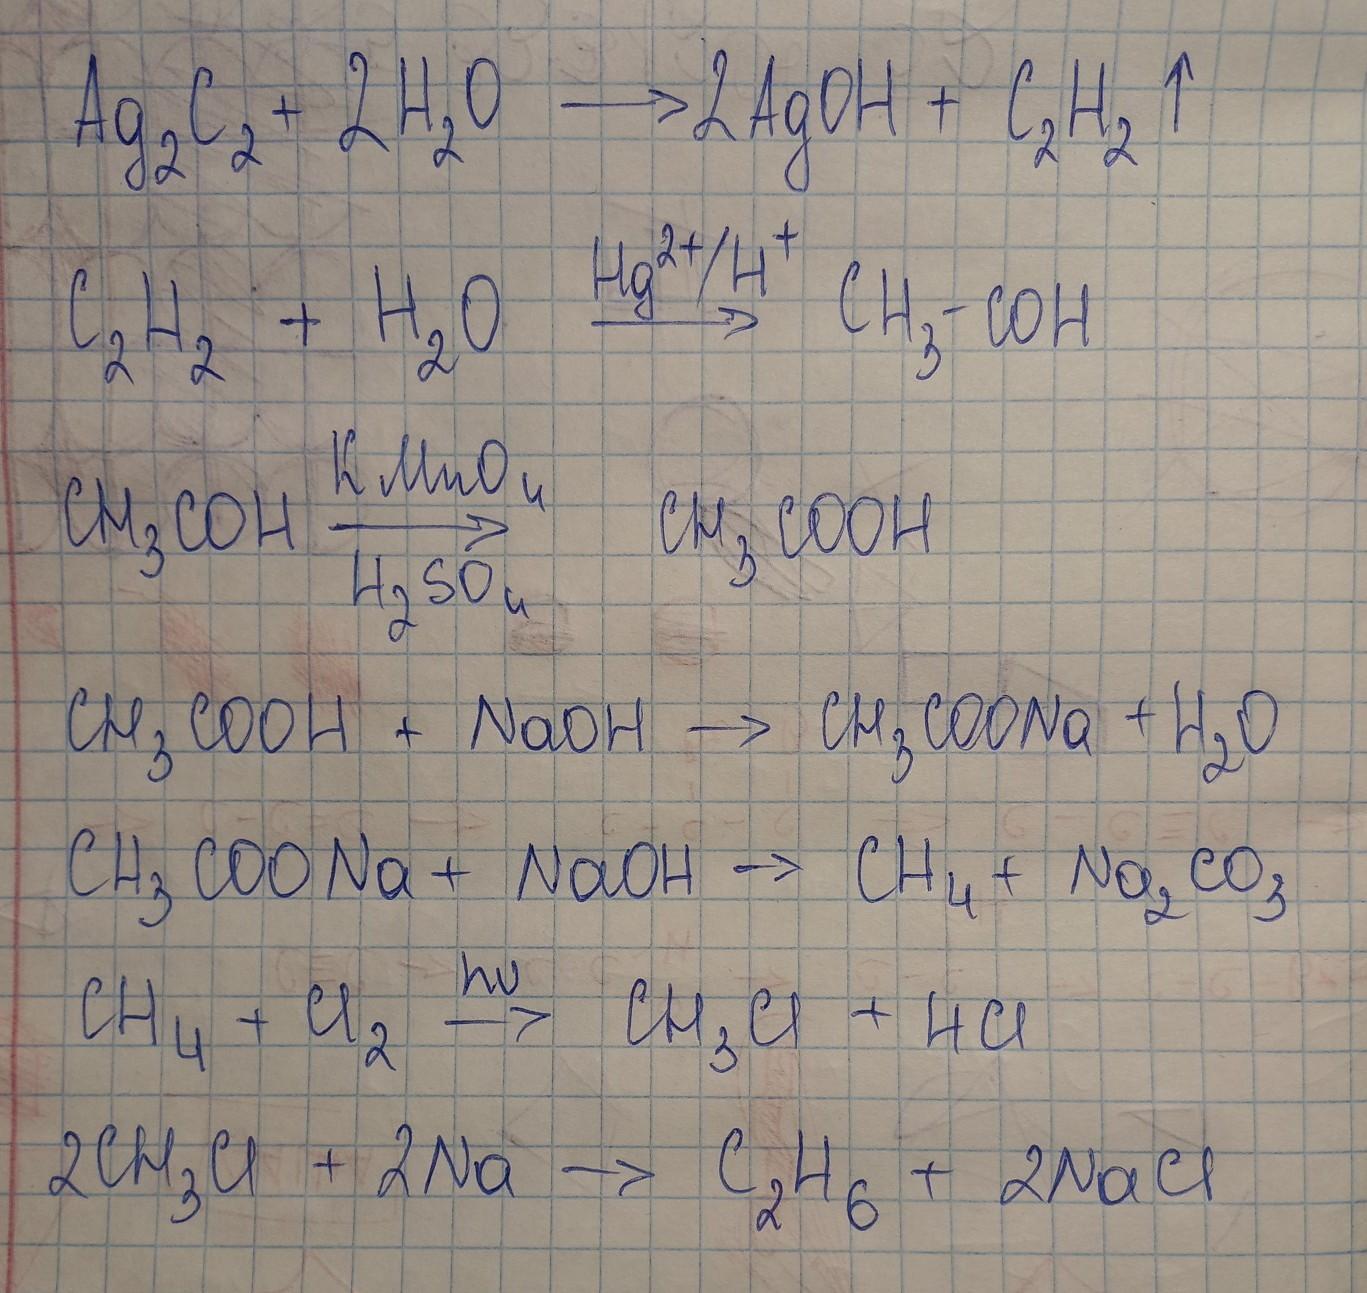 Ag₂C₂ + 2H₂O → 2AgOH + C₂H₂ ↑
C₂H₂ + H₂O Hg²⁺/H⁺ → CH₃-COH
CH₃COH KMnO₄ → H₂SO₄ CH₃COOH
CH₃COOH + NaOH → CH₃COONa + H₂O
CH₃COONa + NaOH → CH₄ + Na₂CO₃
CH₄ + Cl₂ hν → CH₃Cl + HCl
2CH₃Cl + 2Na → C₂H₆ + 2NaCl